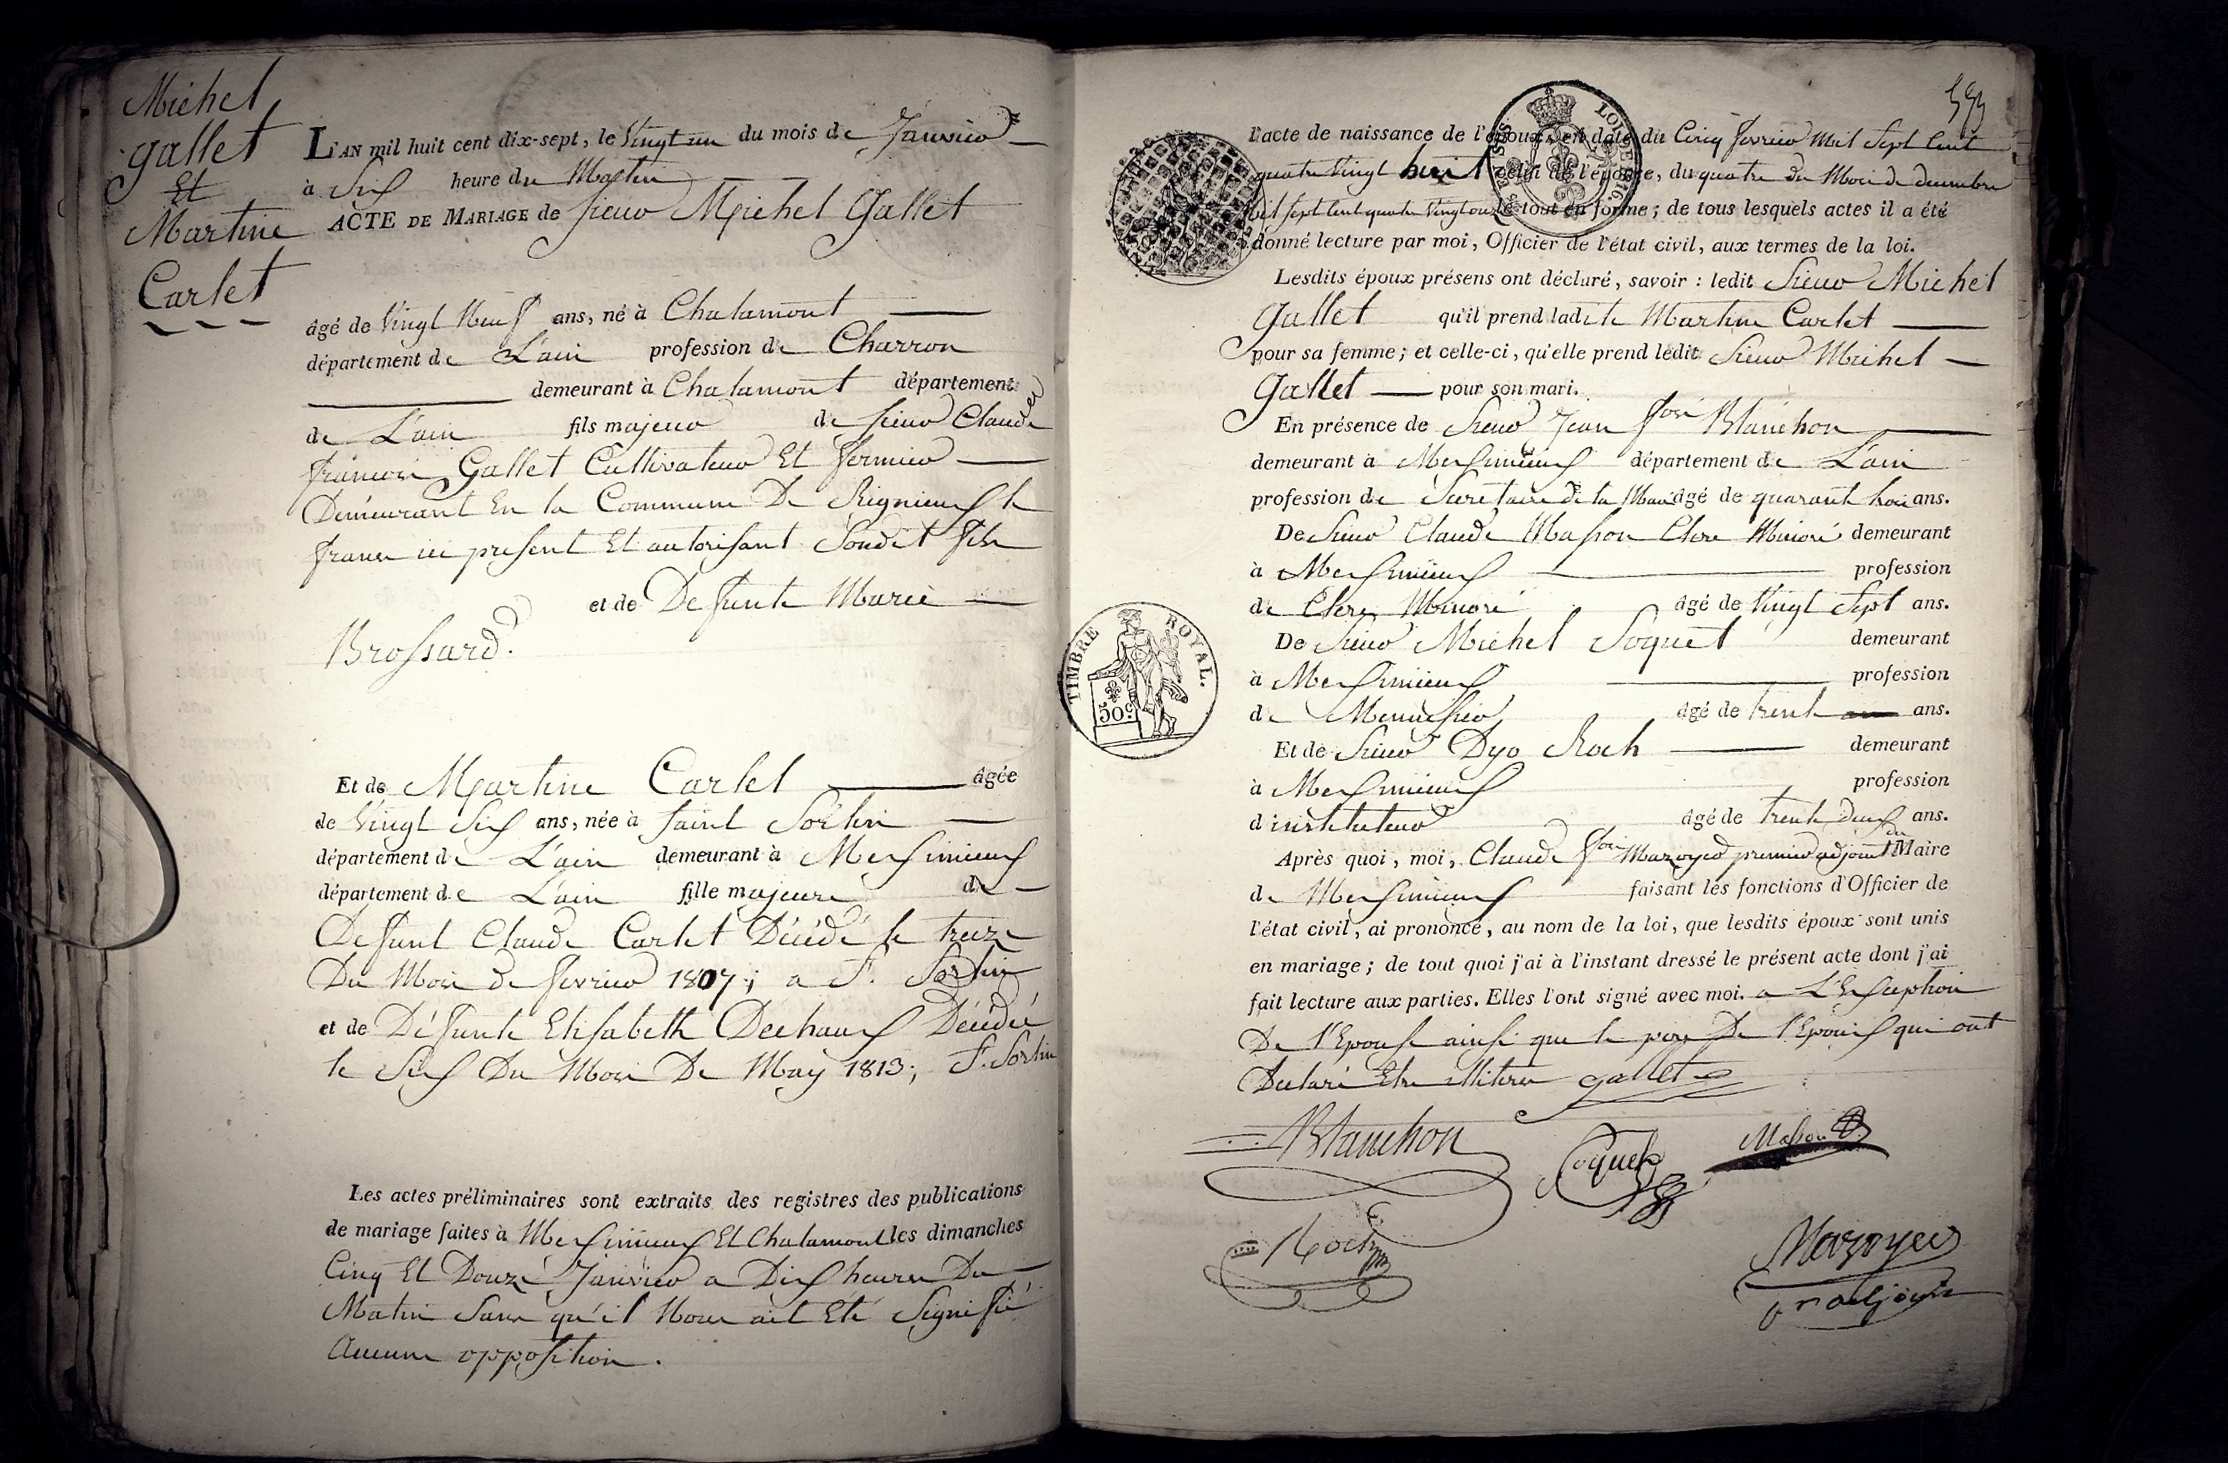 Michel
Gallet
Et
Martine
Carlet
L'AN mil huit cent dix-sept, le Vingt un du mois de Janvier
à Six heure du Matin
ACTE DE MARIAGE de sieur Michel Gallet
âgé de Vingt Neuf ans, né à Chalamont
département de L'ain profession de Charron
demeurant à Chalamont département
de L'ain fils majeur de sieur Claude
francois Gallet Cultivateur Et fermier
Demeurant En la Commune De Rignieux le
franc ici present Et autorisant Sondit fils
et de Defunte Marie
Brossard.
Et de Martine Carlet âgée
de Vingt Six ans, née à saint Sorlin
département de L'ain demeurant à Meximieux
département de L'ain fille majeure de
Defunt Claude Carlet Décédé le treize
Du Mois de fevrier 1807; a St. Sorlin
et de Défunte Elisabeth Dechaux Décédée
le Six Du Mois De May 1813; St. Sorlin
Les actes préliminaires sont extraits des registres des publications
de mariage faites à Meximieux Et Chalamont les dimanches
Cinq Et Douze Janvier a Dix heures Du
Matin Sans qu'il Nous ait Eté Signifié
Aucune opposition.
l'acte de naissance de l'époux, en date du Cinq fevrier Mil Sept Cent
quatre Vingt huit celui de l'épouse, du quatre du Mois de decembre
Mil sept Cent quatre Vingt onze le tout en forme; de tous lesquels actes il a été
donné lecture par moi, Officier de l'état civil, aux termes de la loi.
Lesdits époux présens ont déclaré, savoir : ledit Sieur Michel
Gallet qu'il prend ladite Martine Carlet
pour sa femme; et celle-ci, qu'elle prend ledit Sieur Michel
Gallet pour son mari.
En présence de Sieur Jean fois Blanchon
demeurant à Meximieux département de L'ain
profession de Secretaire de la Mairie âgé de quarante trois ans.
De Sieur Claude Masson Clerc Minoré demeurant
à Meximieux profession
de Clerc Minoré âgé de Vingt Sept ans.
De Sieur Michel Soquet demeurant
à Meximieux profession
de Menuisier âgé de trente ans.
Et de Sieur Dyo Roch demeurant
à Meximieux profession
d'instituteur âgé de trente deux ans.
Après quoi, moi, Claude fois Mazoyer premier adjoint du Maire
de Meximieux faisant les fonctions d'Officier de
l'état civil, ai prononcé, au nom de la loi, que lesdits époux sont unis
en mariage; de tout quoi j'ai à l'instant dressé le présent acte dont j'ai
fait lecture aux parties. Elles l'ont signé avec moi. a L'Exception
De l'Epouse ainsi que le pere De l'Epoux qui ont
Declaré Etre Illiteres gallet
Blanchon
Soquet
Masson
Roch
Mazoyer
pr adjoint
TIMBRE ROYAL.
50c